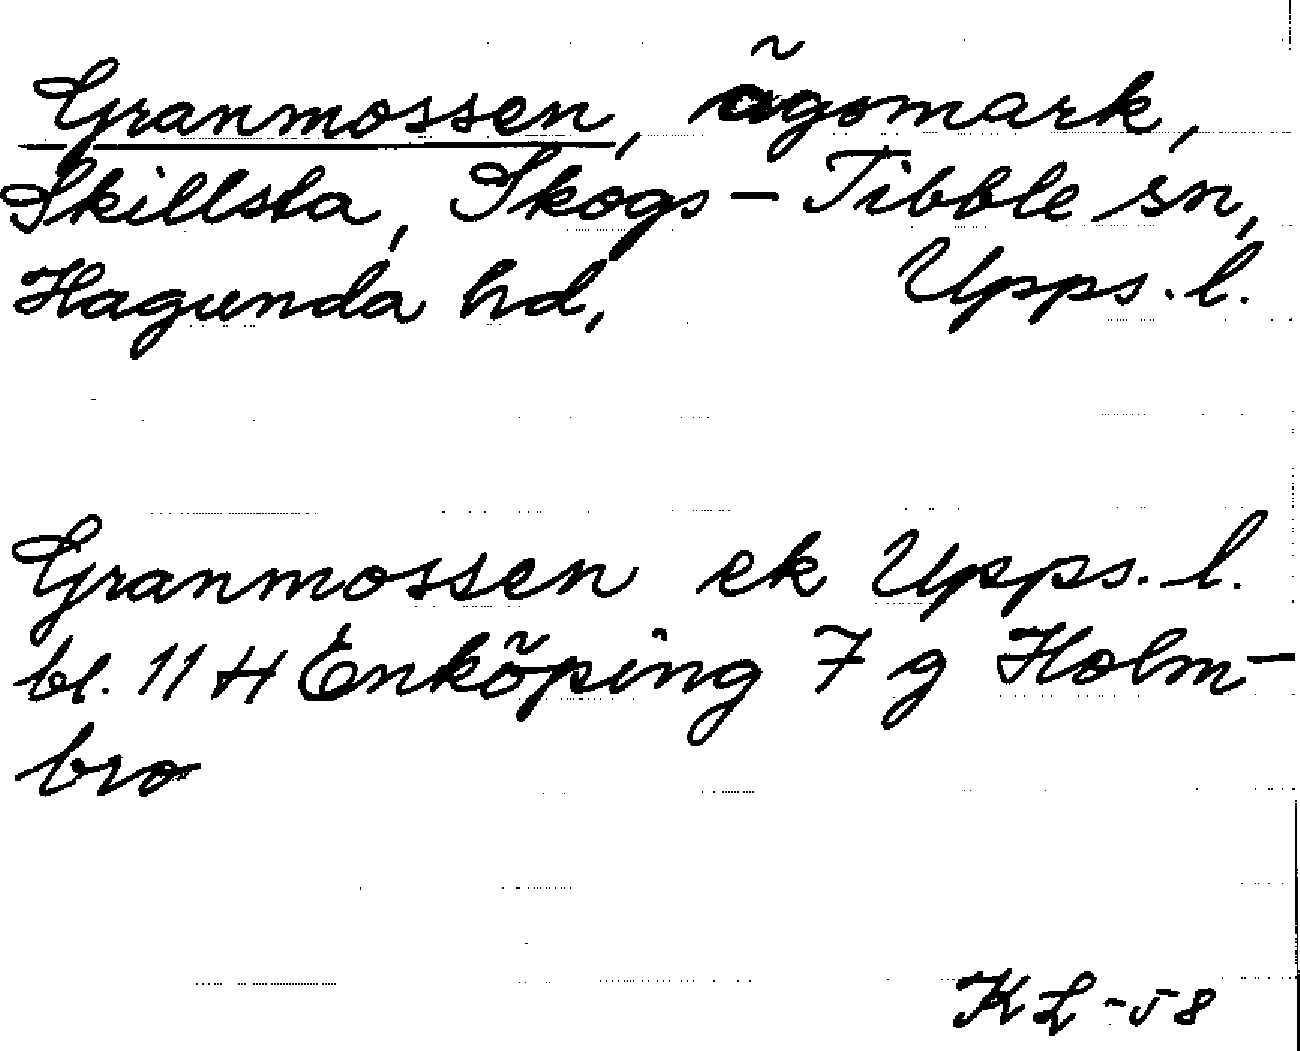 Granmossen, ägomark,
Skillsta, Skogs-Tibble sn,
Hagunda hd, Upps. l.
Granmossen ek Upps. l.
bl. 11 H Enköping 7 g Holm-
bro
KL -58